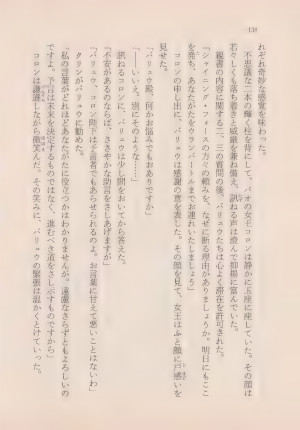 138
れぞれ奇妙な感覚を味わった。
不思議な二本の輝く柱を背にして、パオの女王コロンは静かに玉座に座していた。その顔は
若々しくも落ち着きと威厳を兼ね備え、訊ねる声は澄んで抑揚に富んでいた。
親書の内容に関する二、三の質問の後、バリュウたちは心よく滞在を許可された。
「シャイニング・フォースの方々の頼みを、なぜに断る理由がありましょうか。明日にもここ
を発ち、あなたがたをウランバートルまでお連れいたしましょう」
コロンの申し出に、バリュウは感謝の意を表した。その顔を見て、女王はふと顔に戸惑いを
見せた。
「バリュウ殿、何かお悩みでもおありですか」
「――いいえ、別にそのような」
訊ねるコロンに、バリュウは少し間をおいてから答えた。
「不安があるのならば、ささやかな助言をさしあげますが」
「バリュウ、コロン陛下は予言者でもあらせられるのよ。お言葉に甘えて悪いことはないわ」
クリンがバリュウに勧めた。
「私の言葉がどれほどあなたがたに役立つかはわかりませんが、遠慮なさらずともよろしいの
ですよ。予言は未来を決定するものではなく、進むべき道をさし示すものですから」
コロンは謙遜しながら微笑んだ。その笑みに、バリュウの緊張は温かくとけていった。